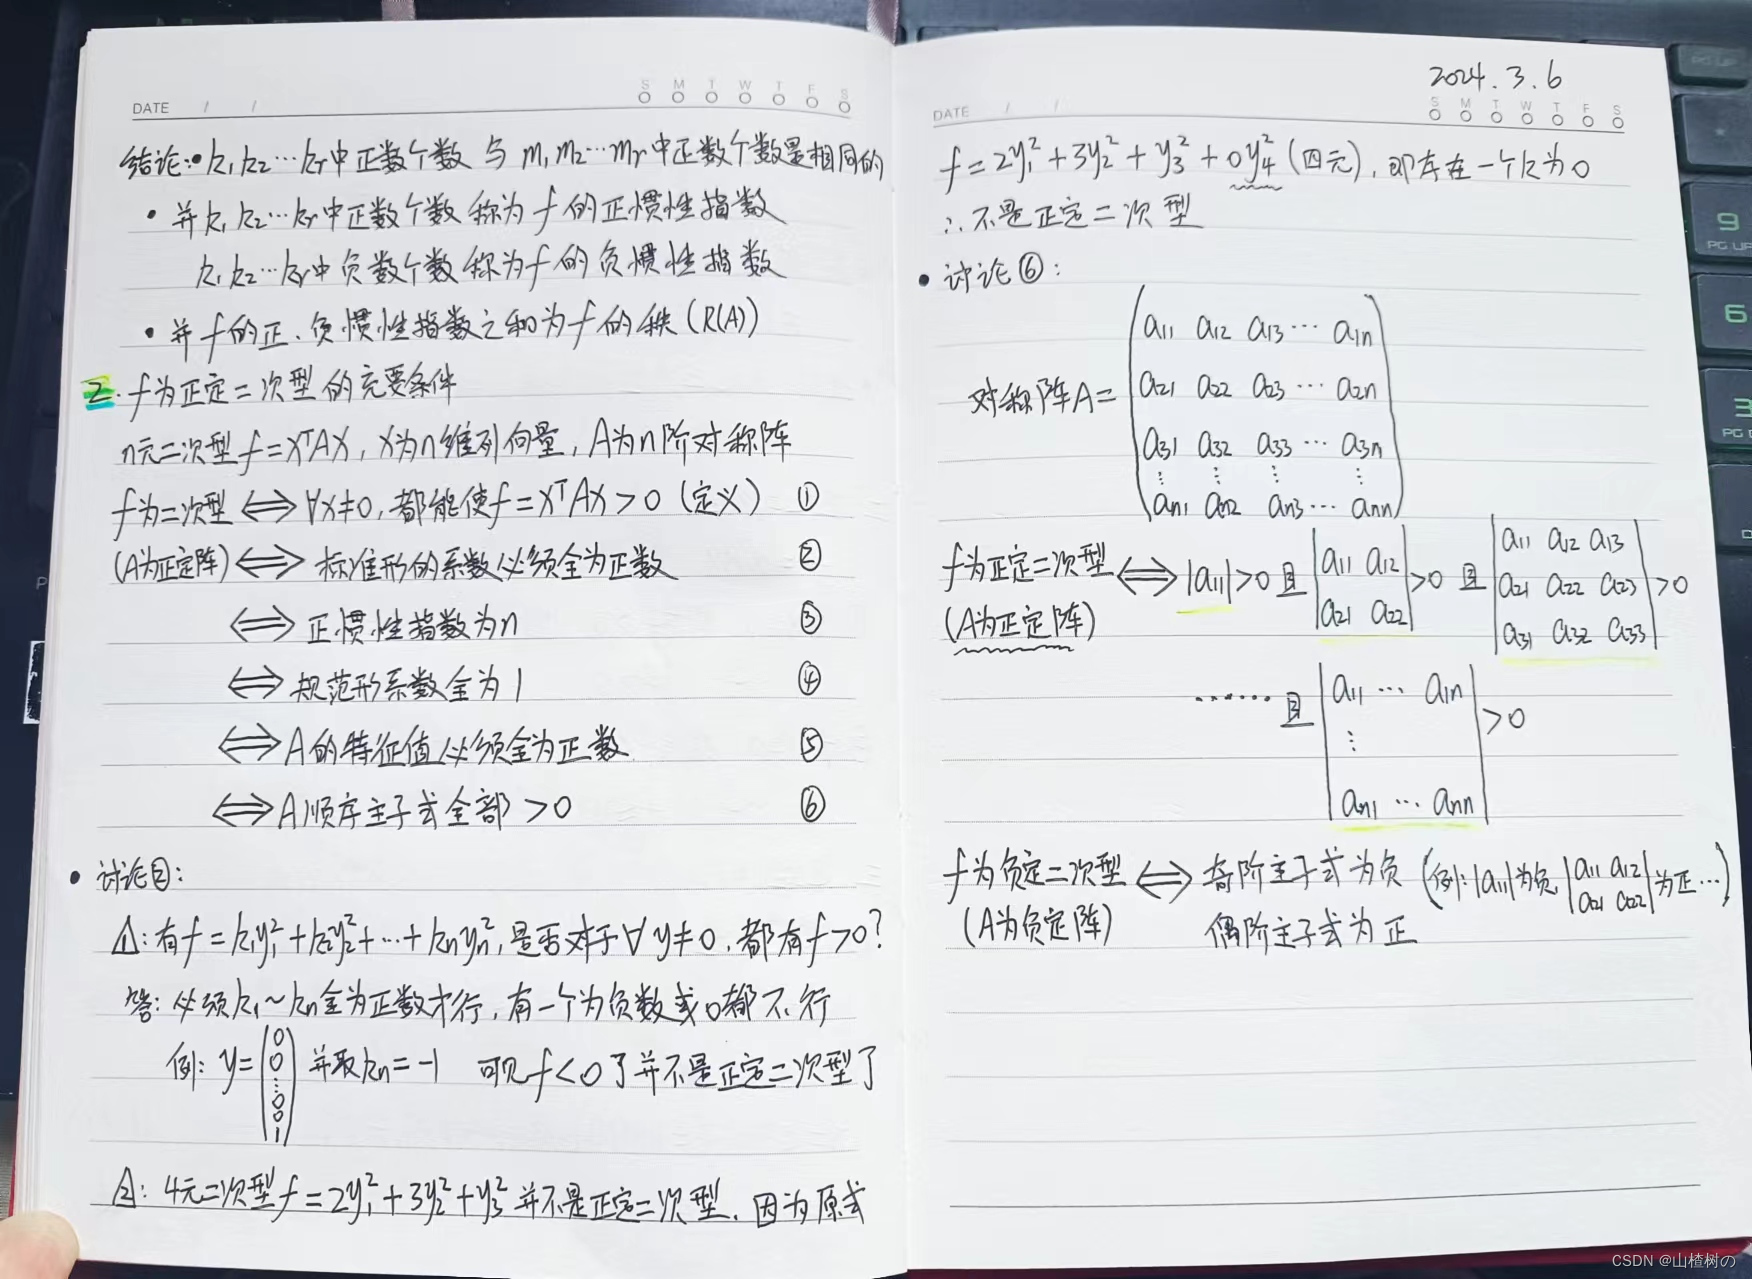 DATE / /
S M T W T F S
结论:• k₁,k₂…kᵣ中正数个数 与 m₁,m₂…mᵣ中正数个数是相同的
• 并k₁,k₂…kᵣ中正数个数 称为 f 的正惯性指数
k₁,k₂…kᵣ中负数个数 称为f的负惯性指数
• 并 f的正、负惯性指数之和为f的秩(R(A))
2. f为正定二次型的充要条件
n元二次型 f=xᵀAx, x为n维列向量, A为n阶对称阵
f为二次型 ⟺ ∀x≠0, 都能使f=xᵀAx>0 (定义) ①
(A为正定阵) ⟺ 标准形的系数必须全为正数 ②
⟺ 正惯性指数为n ③
⟺ 规范形系数全为1 ④
⟺ A的特征值必须全为正数 ⑤
⟺ A顺序主子式全部>0 ⑥
• 讨论②:
△1: 有f=k₁y₁²+k₂y₂²+…+kₙyₙ², 是否对于∀y≠0, 都有f>0?
答: 必须k₁~kₙ全为正数才行, 有一个为负数或0都不行
例: y=(0 0 ⋮ 0 0 1) 并取kₙ=-1 可见f<0了并不是正定二次型了
△2: 4元二次型f=2y₁²+3y₂²+y₃² 并不是正定二次型. 因为原式
2024.3.6
DATE / /
S M T W T F S
f=2y₁²+3y₂²+y₃²+0y₄² (四元), 即存在一个k为0
∴不是正定二次型
• 讨论⑥:
a₁₁ a₁₂ a₁₃ … a₁ₙ
a₂₁ a₂₂ a₂₃ … a₂ₙ
对称阵A=
a₃₁ a₃₂ a₃₃ … a₃ₙ
⋮ ⋮ ⋮ ⋮
aₙ₁ aₙ₂ aₙ₃ … aₙₙ
f为正定二次型 ⟺ |a₁₁|>0 且 |a₁₁ a₁₂ a₂₁ a₂₂|>0 且 |a₁₁ a₁₂ a₁₃ a₂₁ a₂₂ a₂₃ a₃₁ a₃₂ a₃₃|>0
(A为正定阵)
…… 且 |a₁₁ … a₁ₙ ⋮ aₙ₁ … aₙₙ|>0
f为负定二次型 ⟺ 奇阶主子式为负 (例:|a₁₁|为负 |a₁₁ a₁₂ a₂₁ a₂₂|为正…)
(A为负定阵) 偶阶主子式为正
PG UP
9
PG UP
6
3
CSDN @山楂树の